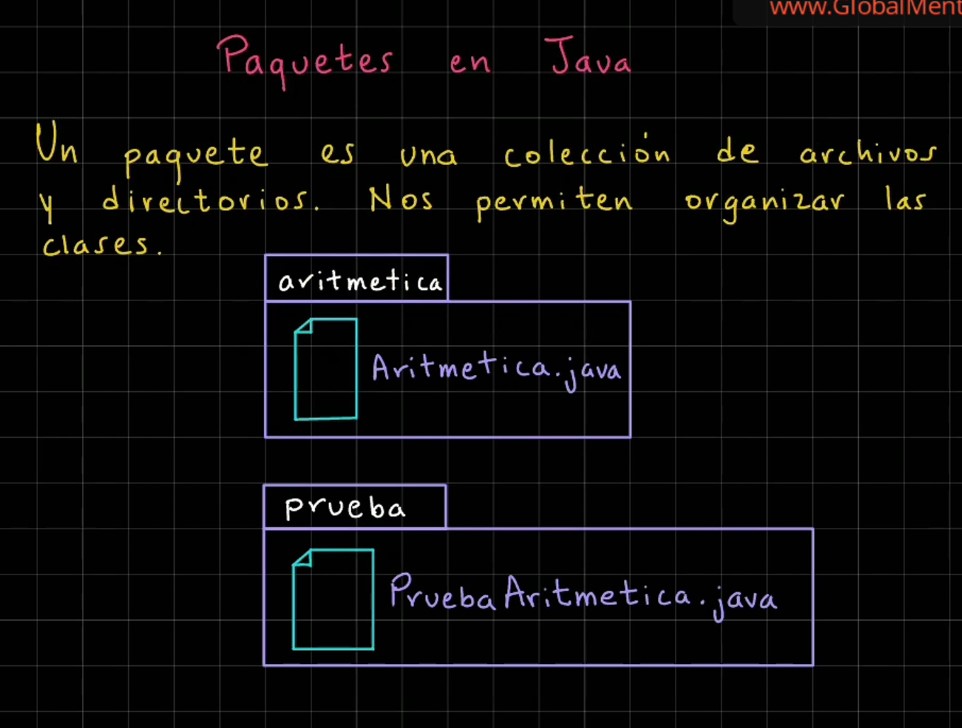 www.GlobalMent
Paquetes en Java
Un paquete es una colección de archivos
y directorios. Nos permiten organizar las
clases.
aritmetica
Aritmetica.java
prueba
PruebaAritmetica.java